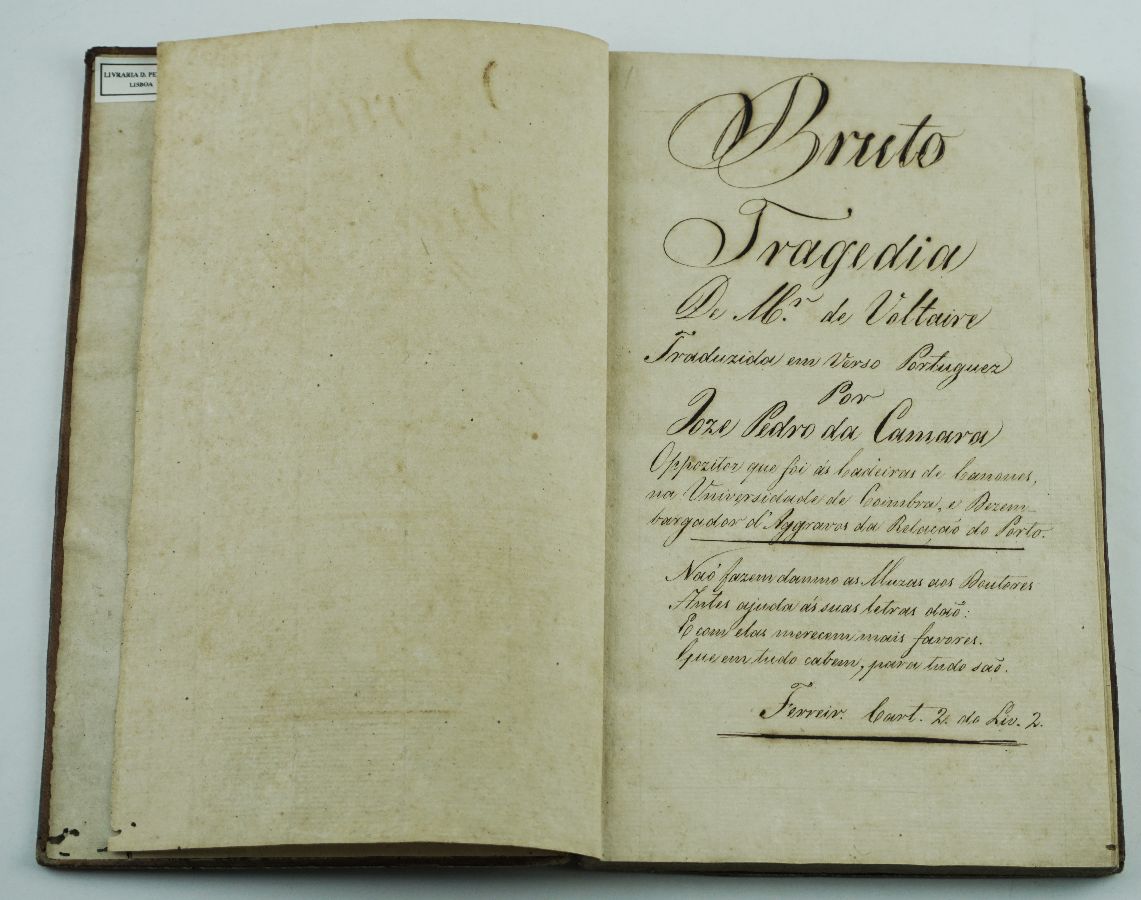 LIVRARIA D. PE
LISBOA
Bruto
Tragedia
De M.r de Voltaire
Traduzida em Verso Portuguez
Por
Joze Pedro da Camara
Oppozitor que foi ás Cadeiras de Canones,
na Universidade de Coimbra, e Dezem_
bargador d'Aggravos da Relação do Porto.
Naõ fazem damno as Muzas aos Doutores
Antes ajuda ás suas letras daõ:
E com elas merecem mais favores.
Que em tudo cabem, para tudo saõ.
Ferreir. Cart. 2. do Liv. 2.